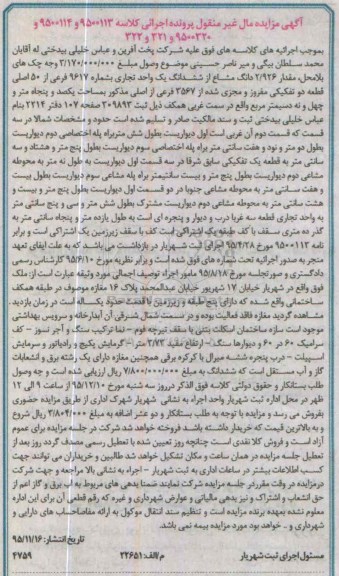 آگهی مزایده مال غیر منقول پرونده اجرائی کلاسه ۹۵۰۰۱۱۳ و ۹۵۰۰۱۱۴ و
۹۵۰۰۳۲۰ و ۳۲۱ و ۳۲۲
بموجب اجرائیه های کلاسه های فوق علیه شرکت پخت آفرین و عباس خلیلی بیدختی له آقایان
محمد سلطان بیگی و میر ناصر حسینی موضوع وصول مبلغ ۲/۱۷۰/۰۰۰/۰۰۰ وجه چک های
بلامحل، مقدار ۲/۹۲۶ دانگ مشاع از ششدانگ یک واحد تجاری بشماره ۹۶۱۷ فرعی از ۵۰ اصلی
قطعه دو تفکیکی مفروز و مجزی شده از ۳۵۶۷ فرعی از اصلی مذکور بمساحت یکصد و پنجاه متر و
چهل و نه دسیمتر مربع واقع در سمت غربی همکف ذیل ثبت ۲۰۹۸۹۳ صفحه ۱۰۷ دفتر ۲۲۱۴ بنام
عباس خلیلی بیدختی ثبت و سند مالکیت صادر و تسلیم شده است حدود و مشخصات شمالا در سه
قسمت که قسمت دوم آن غربی است اول دیواریست بطول شش متر براه پله اختصاصی دوم دیواریست
بطول دو متر و نود و هفت سانتی متر براه پله اختصاصی سوم دیواریست بطول پنج متر و هشتاد و سه
سانتی متر به قطعه یک تفکیکی سابق شرقا در سه قسمت اول دیواریست به طول نه متر به محوطه
مشاعی دوم دیواریست بطول پنج متر و بیست سانتیمتر براه پله مشاعی سوم دیواریست بطول بیست
و هفت سانتی متر به محوطه مشاعی جنوبا در دو قسمت اول دیواریست بطول پنج متر و بیست و
هشت سانتی متر به محوطه مشاعی دوم دیواریست مشترک بطول شش متر و سی و پنج سانتی متر
به واحد تجاری قطعه سه غربا درب و دیوار و پنجره ای است به طول یازده متر و پنجاه سانتی متر به
گذر ده متری سقف با کف طبقه یک اشتراکی است کف با سقف زیرزمین یک اشتراکی است و برابر
نامه ۹۵۰۰۱۱۲ مورخ ۹۵/۴/۲۸ اجرای ثبت شهریار در بازداشت می باشد که به علت ایفای تعهد
منجر به صدور اجرائیه تحت شماره های فوق شده است و برابر نظریه مورخ ۹۵/۶/۱۰ کارشناس رسمی
دادگستری و صورتجلسه مورخ ۹۵/۸/۱۸ مامور اجراء توصیف اجمالی مورد وثیقه عبارت است از: ملک
فوق واقع در شهریار خیابان ۱۷ شهریور خیابان عبدالمجید پلاک ۱۶ مغازه موصوف در طبقه همکف
ساختمانی واقع شده که دارای پنج طبقه و زیرزمین با قدمت حدود یکساله است در زمان بازدید
مشاهده گردید مغازه فاقد فعالیت بوده و در سمت شمال شرقی آن آبدارخانه و سرویس بهداشتی
موجود است سازه ساختمان اسکلت بتنی با سقف تیرچه فوم – نما ترکیب سنگ و آجر نسوز – کف
سرامیک ۶۰ در ۶۰ و دیوارها سنگ – ارتفاع مفید ۳/۷۳ متر – گرمایش پکیج و رادیاتور و سرمایش
اسپیلت – درب پنجره ششه میرال با کرکره برقی همچنین مغازه دارای یک رشته برق و انشعابات
گاز و آب مستقل است که ششدانگ به مبلغ ۷/۸۰۰/۰۰۰/۰۰۰ ریال ارزیابی شده است و جه وصول
طلب بستانکار و حقوق دولتی کلاسه فوق الذکر در روز سه شنبه مورخ ۹۵/۱۲/۱۰ از ساعت ۹ الی ۱۲
ظهر در محل اداره ثبت شهریار واحد اجراء به نشانی شهریار شهرک اداری از طریق مزایده حضوری
بفروش می رسد و مزایده با توجه به طلب بستانکار و دو عشر اضافه به مبلغ ۳/۸۰۴/۰۰۰/۰۰۰ ریال شروع
و به بالاترین قیمت که خریدار داشته باشد فروخته خواهد شد شرکت در جلسه مزایده برای عموم
آزاد است و فروش کلا نقدی است چنانچه روز تعیین شده با تعطیل رسمی مصدف گردد روز بعد از
تعطیل جلسه مزایده در همان ساعت و مکان تشکیل خواهد شد طالبین و خریداران می توانند جهت
کسب اطلاعات بیشتر در ساعات اداری به ثبت شهریار – اجراء به نشانی بالا مراجعه و جهت شرکت
در مزایده در وقت مقرر در جلسه مزایده شرکت نمایند ضمنا بدهی های مربوط به آب برق و گاز اعم از
حق انشعاب و اشتراک و نیز بدهی مالیاتی و عوارض شهرداری و غیره که رقم قطعی آن برای این اداره
معلوم نشده بعهده برنده مزایده است و تنظیم سند انتقال موکول به ارائه مفاصاحساب های دارایی و
شهرداری و .. خواهد بود مورد مزایده بیمه نمی باشد.
تاریخ انتشار: ۹۵/۱۱/۱۶
مسئول اجرای ثبت شهریار م/الف: ۲۲۶۵۱ ۴۷۵۹